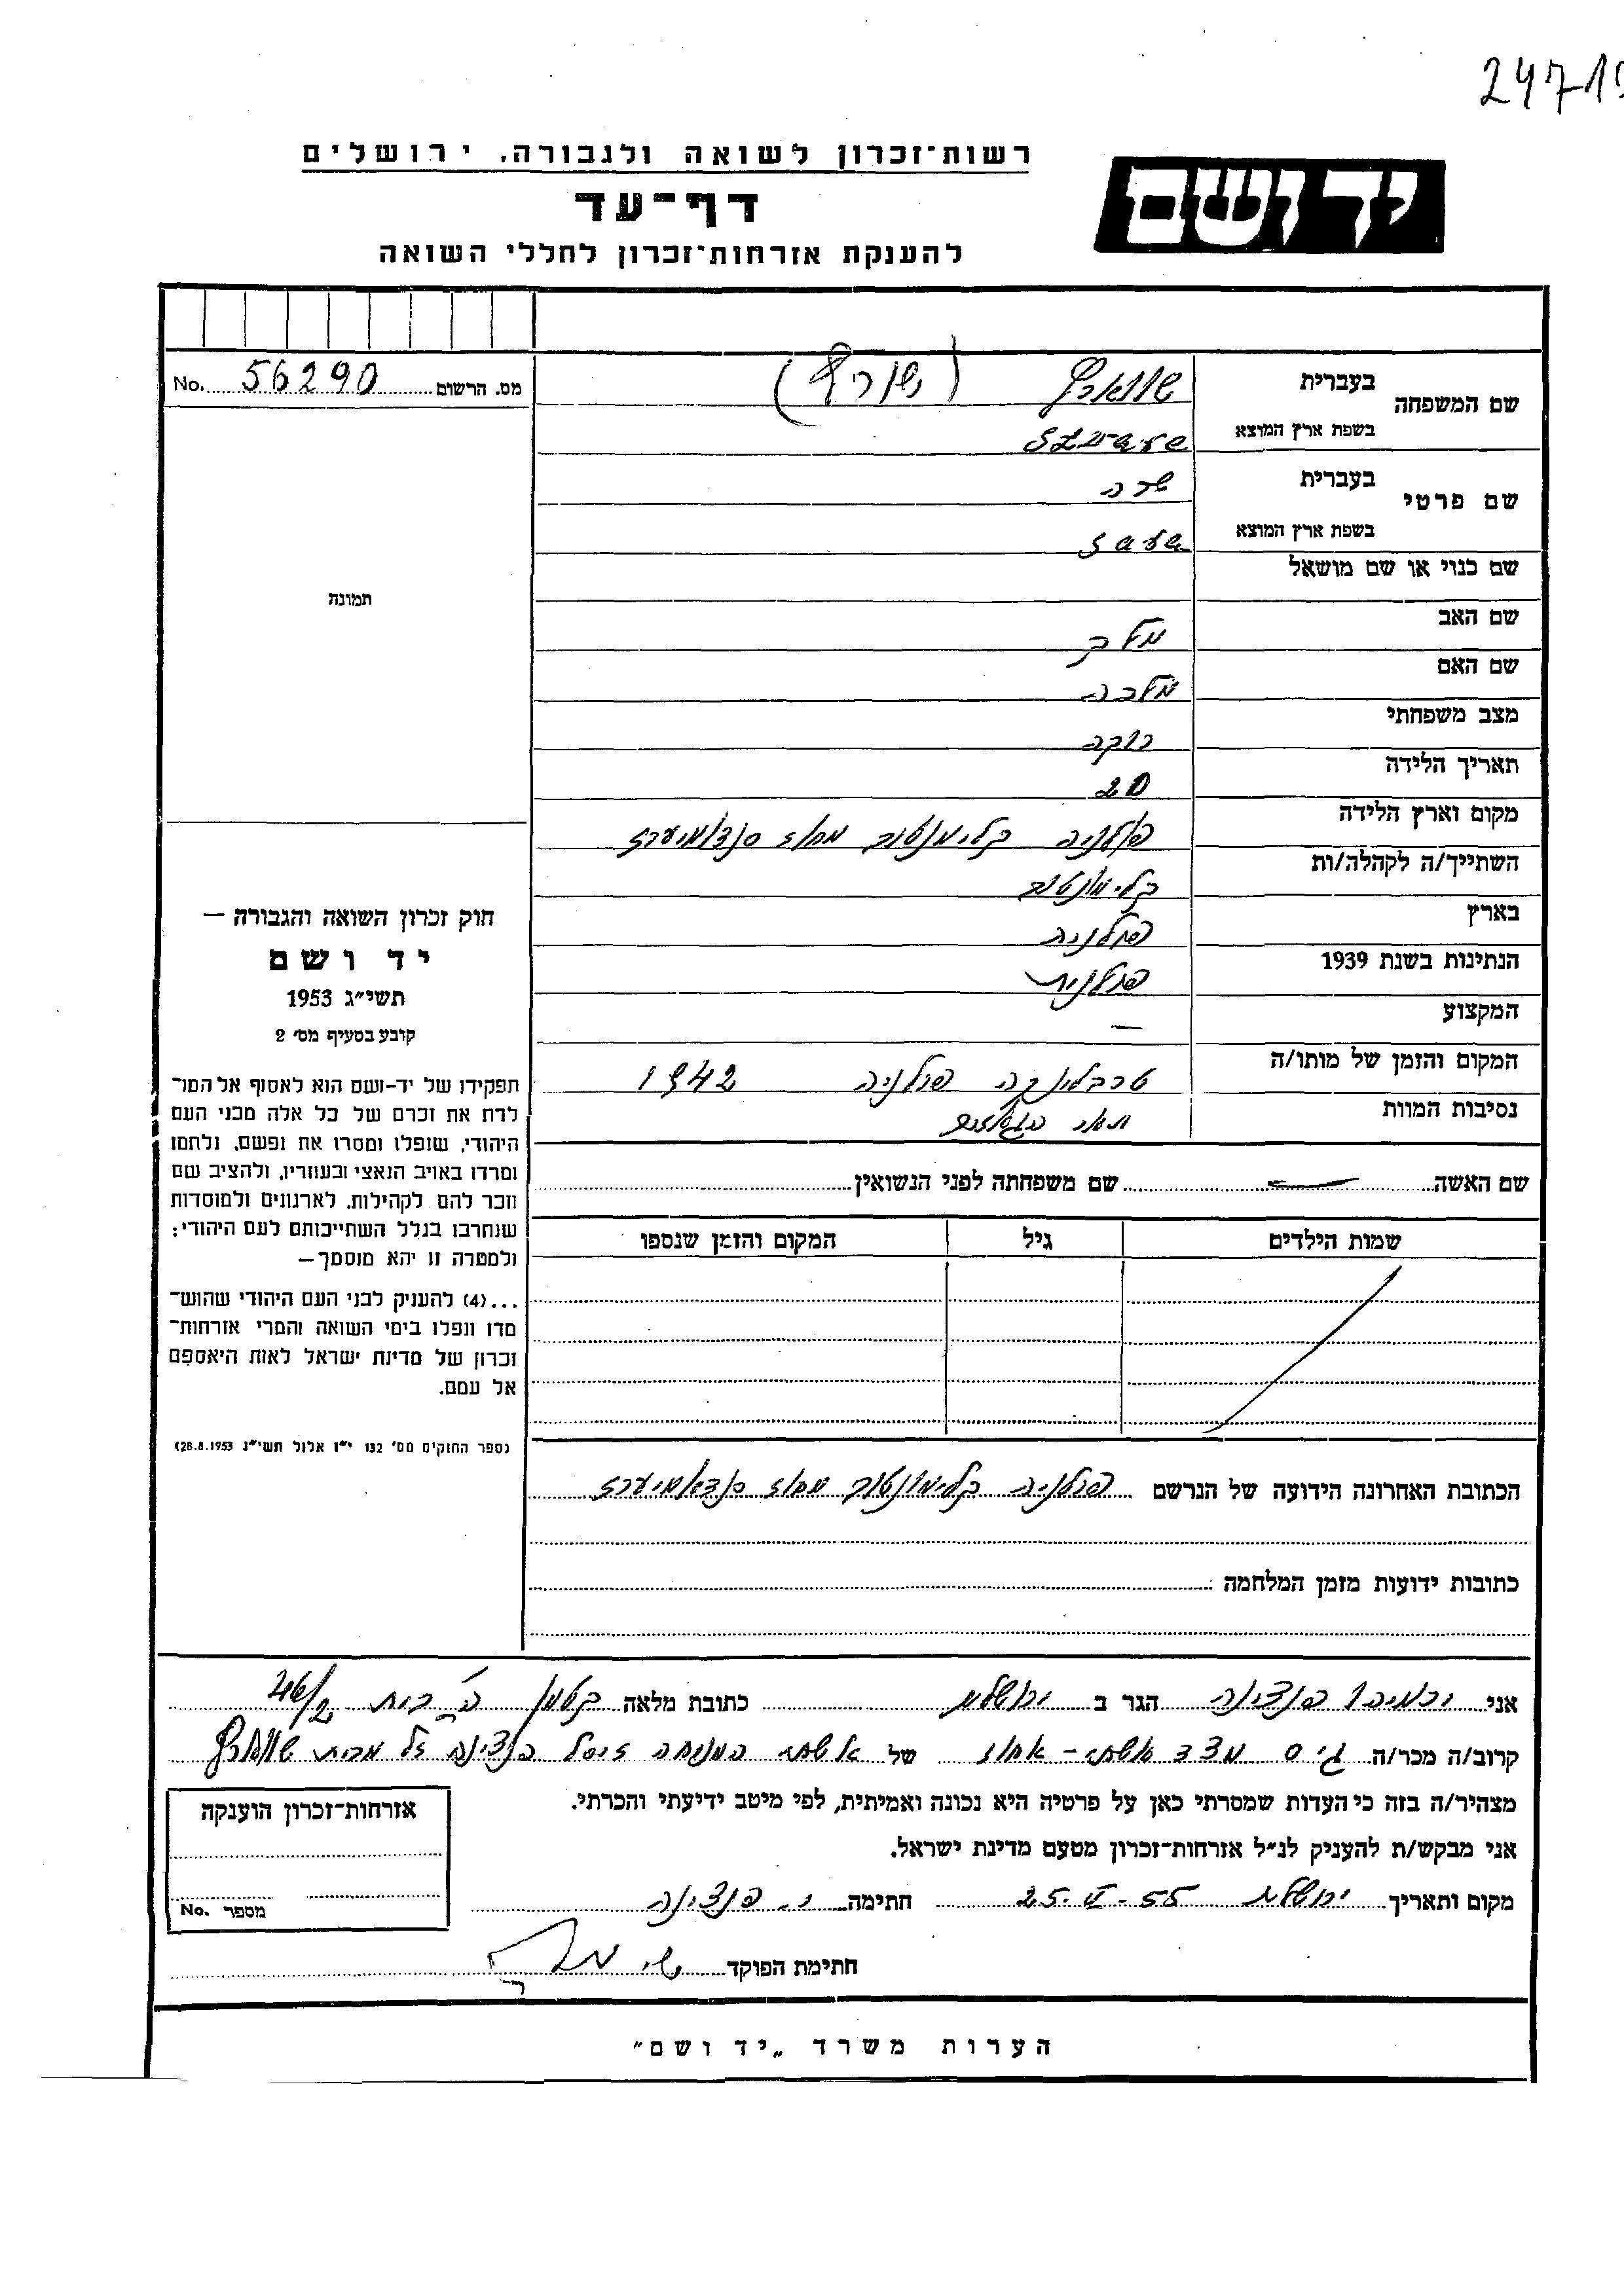 2471
רשות־זכרון לשואה ולגבורה, ירושלים
יד ושם
דף־עד
להענקת אזרחות־זכרון לחללי השואה
מס. הרשום 56290 No.
תמונה
שם המשפחה בעברית שווארץ (שורץ)
בשפת ארץ המוצא
שם פרטי בעברית שרה
בשפת ארץ המוצא
שם כנוי או שם מושאל
שם האב מלך
שם האם מלכה
מצב משפחתי רוקה
תאריך הלידה 20
מקום וארץ הלידה פולניה קלימנטוב מחוז סנדומיערז
השתייך/ה לקהלה/ות קלימונטוב
בארץ פולניה
הנתינות בשנת 1939 פולנית
המקצוע —
המקום והזמן של מותו/ה טרבלינקה פולניה 1942
נסיבות המוות תאי הגאזים
שם האשה — שם משפחתה לפני הנשואין
שמות הילדים גיל המקום והזמן שנספו
הכתובת האחרונה הידועה של הנרשם פולניה קלימונטוב מחוז סנדאמיערז
כתובות ידועות מזמן המלחמה :
חוק זכרון השואה והגבורה —
יד ושם
תשי״ג 1953
קובע בסעיף מס׳ 2
תפקידו של יד-ושם הוא לאסוף אל המו־
לדת את זכרם של כל אלה מבני העם
היהודי, שנפלו ומסרו את נפשם, נלחמו
ומרדו באויב הנאצי ובעוזריו, ולהציב שם
וזכר להם לקהילות, לארגונים ולמוסדות
שנחרבו בגלל השתייכותם לעם היהודי;
ולמטרה זו יהא מוסמך—
...(4) להעניק לבני העם היהודי שהוש־
מדו ונפלו בימי השואה והמרי אזרחות־
זכרון של מדינת ישראל לאות היאספם
אל עמם.
(ספר החוקים מס׳ 132 י״ז אלול תשי״ג 28.8.1953)
אני פנצינה הגר ב ירושלים כתובת מלאה קטמון ה׳ בית 46/2
קרוב/ה מכר/ה גיס מצד אשתי - אחות של אשתי המנוחה פנצינה ז״ל מבית שווארץ
מצהיר/ה בזה כי העדות שמסרתי כאן על פרטיה היא נכונה ואמיתית, לפי מיטב ידיעתי והכרתי.
אני מבקש/ת להעניק לנ״ל אזרחות־זכרון מטעם מדינת ישראל.
מקום ותאריך ירושלים 25.V.55 חתימה י. פנצינה
חתימת הפוקד
אזרחות־זכרון הוענקה
מספר No.
הערות משרד „יד ושם״